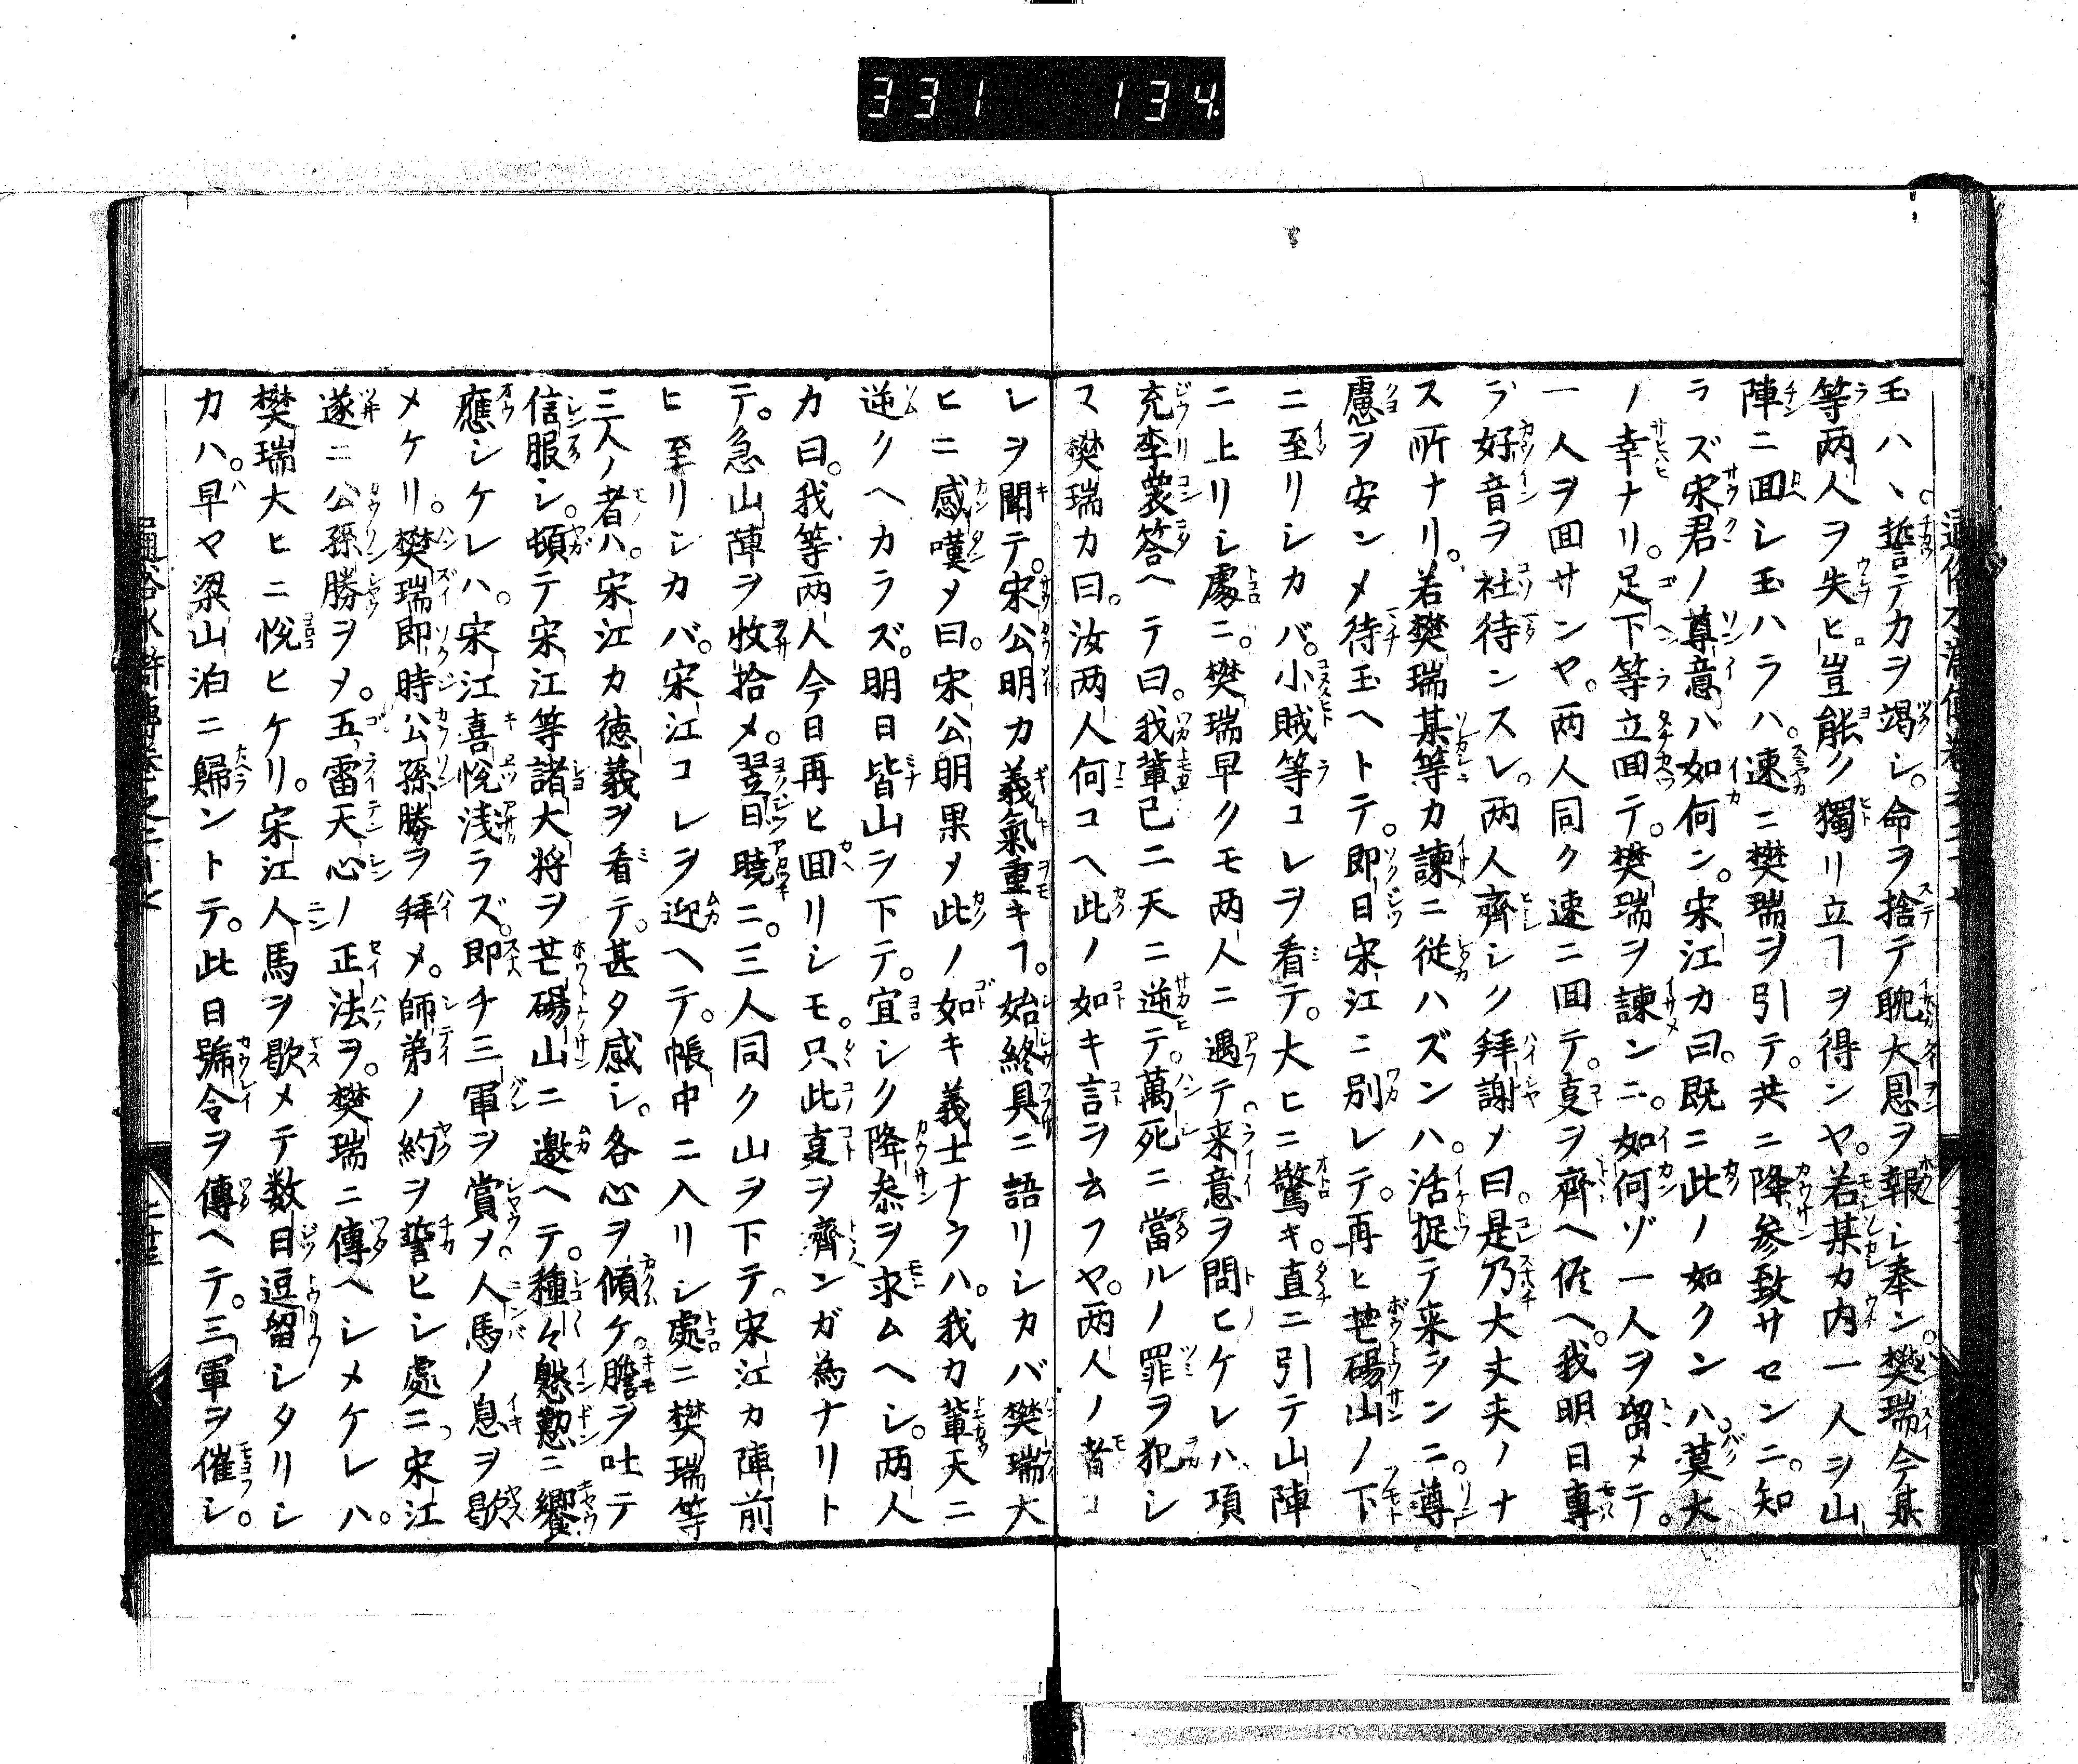 331 134
玉ハヽ。誓テカヲ竭シ。命ヲ捨テ聊大恩ヲ報シ奉ン。樊瑞今某
等両人ヲ失ヒ豈能ク獨リ立ヿヲ得ンヤ。若某カ内一人ヲ山
陣ニ回シ玉ハラハ。速ニ樊瑞ヲ引テ。共ニ降参致サセンニ。知
ラズ宋君ノ尊意ハ如何ン。宋江カ曰。既ニ此ノ如クンハ。莫大
ノ幸ナリ。足下等立回テ。樊瑞ヲ諫ンニ。如何ゾ一人ヲ留メテ。
一人ヲ回サンヤ。両人同ク速ニ回テ。𫝆ヲ齊ヘ候ヘ。我明日專
ラ好音ヲ待ンスレ。両人齊シク拜謝メ曰。是乃大丈夫ノナ
ス所ナリ。若樊瑞某等カ諫ニ從ハズンハ。活捉テ来ランニ。尊
慮ヲ安ンメ待玉ヘトテ。即日宋江ニ別レテ。再ヒ芒碭山ノ下
ニ至リシカバ。小賊等コレヲ看テ。大ヒニ驚キ。直ニ引テ山陣
ニ上リシ處ニ。樊瑞早クモ両人ニ遇テ。来意ヲ問ヒケレハ、項
充李袞答ヘテ曰。我輩已ニ天ニ逆テ。萬死ニ當ルノ罪ヲ犯シ
ヌ樊瑞カ曰。汝両人何コヘ此ノ如キ言ヲ云フヤ。両人ノ者コ
レヲ聞テ。宋公明カ義氣重キヿ。始終具ニ語リシカバ樊瑞大
ヒニ感嘆メ曰。宋公明果メ此ノ如キ義士ナラハ。我カ輩天ニ
逆クヘカラズ。明日皆山ヲ下テ。宜シク降叅ヲ求ムヘシ。両人
カ曰。我等両人今日再ヒ回リシモ。只此𫝆ヲ齊ンガ為ナリト
テ。急山陣ヲ收拾メ。翌日曉ニ。三人同ク山ヲ下テ。宋江カ陣前
ヒ至リシカバ。宋江コレヲ迎ヘテ。帳中ニ入リシ處ニ樊瑞等
三人ノ者ハ。宋江カ徳義ヲ看テ。甚タ感シ。各心ヲ傾ケ。膽ヲ吐テ
信服シ。頓テ宋江等諸大将ヲ芒碭山ニ邀ヘテ。種々慇懃ニ饗
應シケレハ。宋江喜悅淺ラズ。即チ三軍ヲ賞メ。人馬ノ息ヲ歇
メケリ。樊瑞即時公孫勝ヲ拜メ。師弟ノ約ヲ誓ヒシ處ニ、宋江
遂ニ公孫勝ヲメ。五雷天心ノ正法ヲ。樊瑞ニ傳ヘシメケレハ。
樊瑞大ヒニ悅ヒケリ。宋江人馬ヲ歇メテ数日逗留シタリシ
カハ。早ヤ梁山泊ニ歸ントテ。此日號令ヲ傳ヘテ。三軍ヲ催シ。